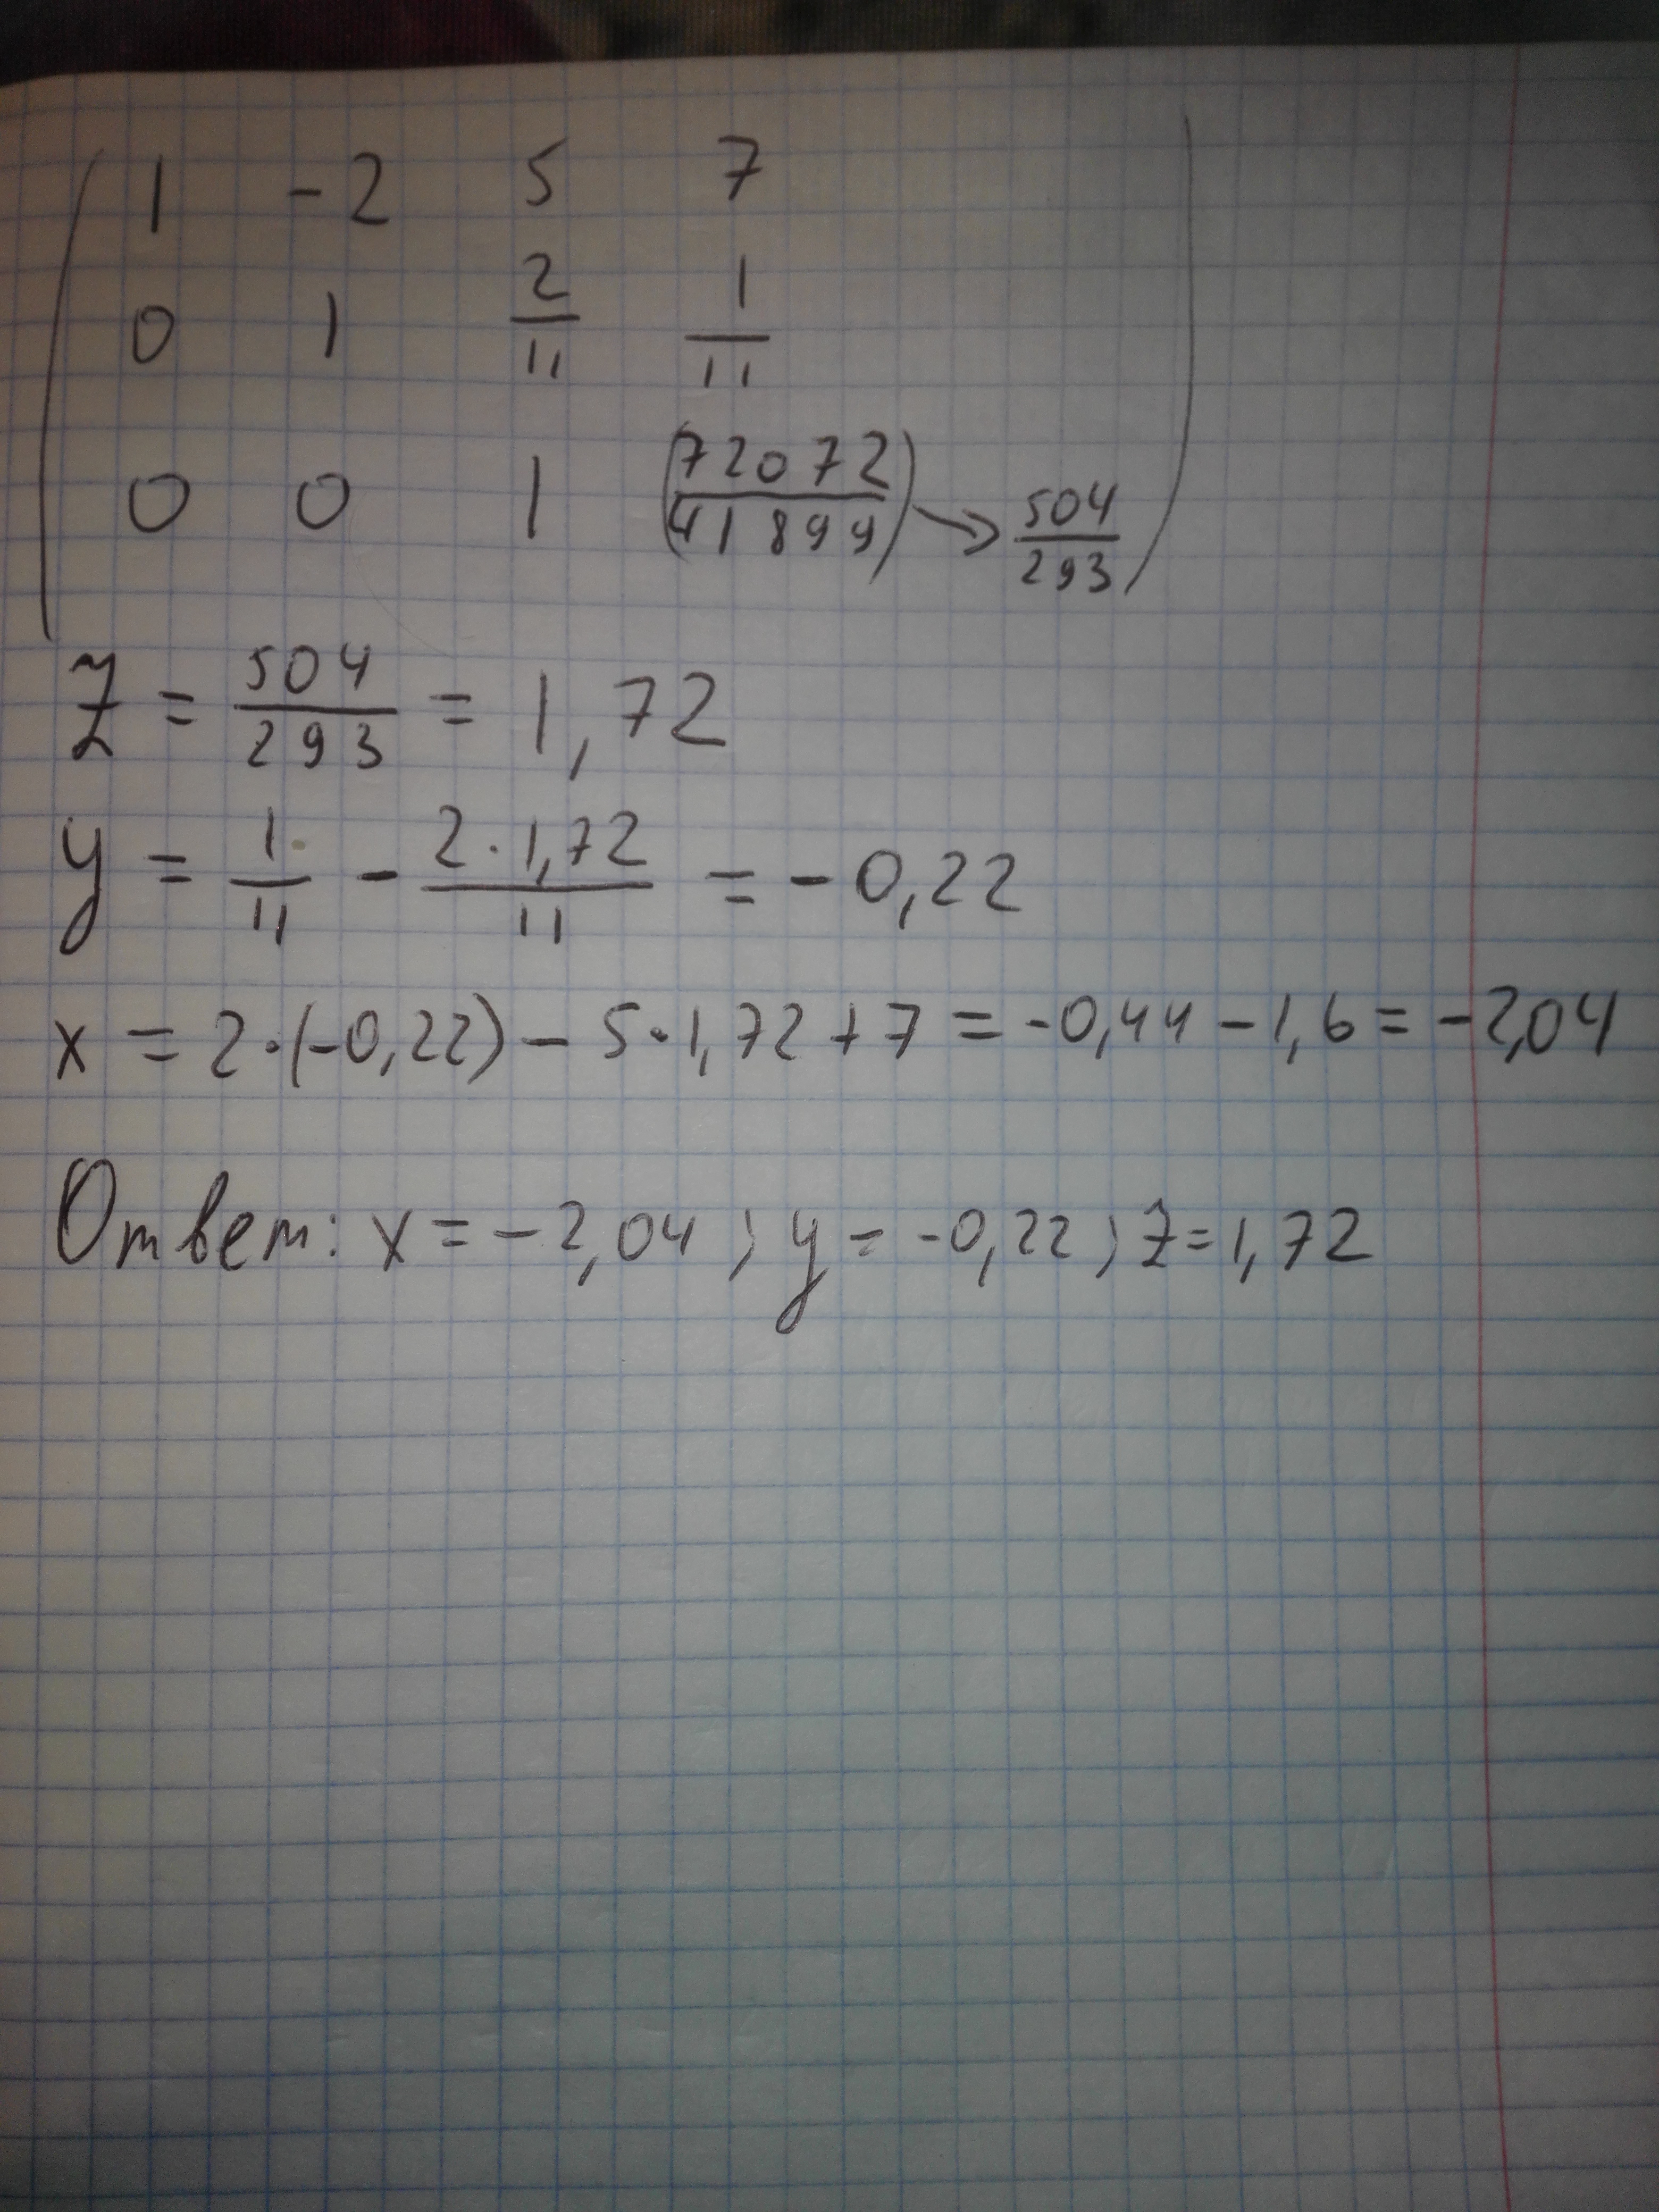 1 -2 5 7
0 1 2/11 1/11
0 0 1 (72072/41899) → 504/293
z = 504/293 = 1,72
y = 1/11 - 2·1,72/11 = -0,22
x = 2·(-0,22) - 5·1,72+7 = -0,44 - 1,6 = -2,04
Ответ: x = -2,04; y = -0,22; z = 1,72